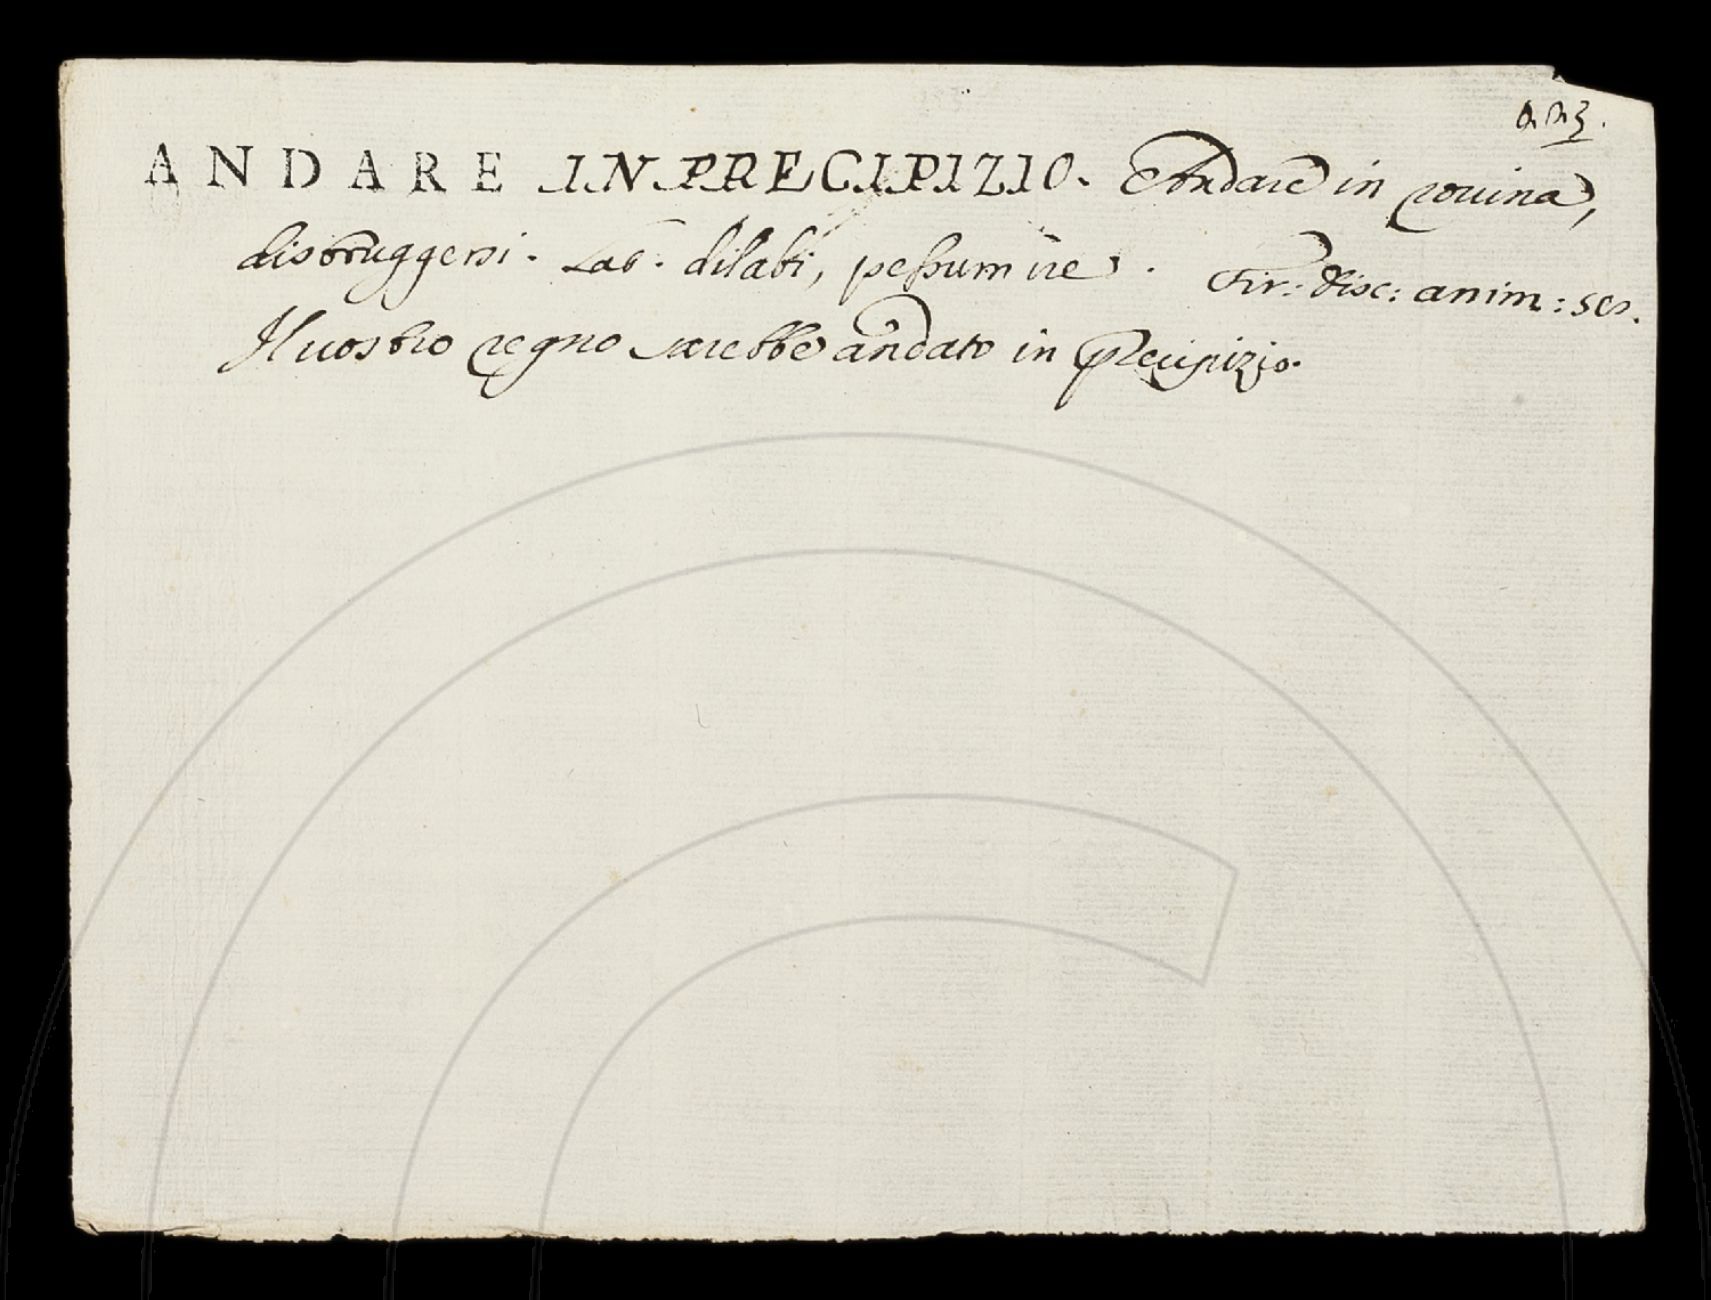 ANDARE IN PRECIPIZIO. Andare in rovina,
distruggersi. Lat. dilabi, pessum ire. Fir: disc: anim: 50.
Il vostro regno sarebbe andato in precipizio.